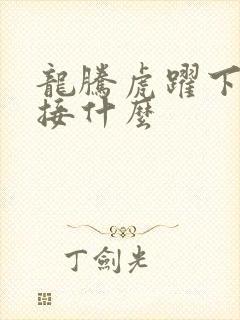 龍騰虎躍下
接什麼
丁劍光